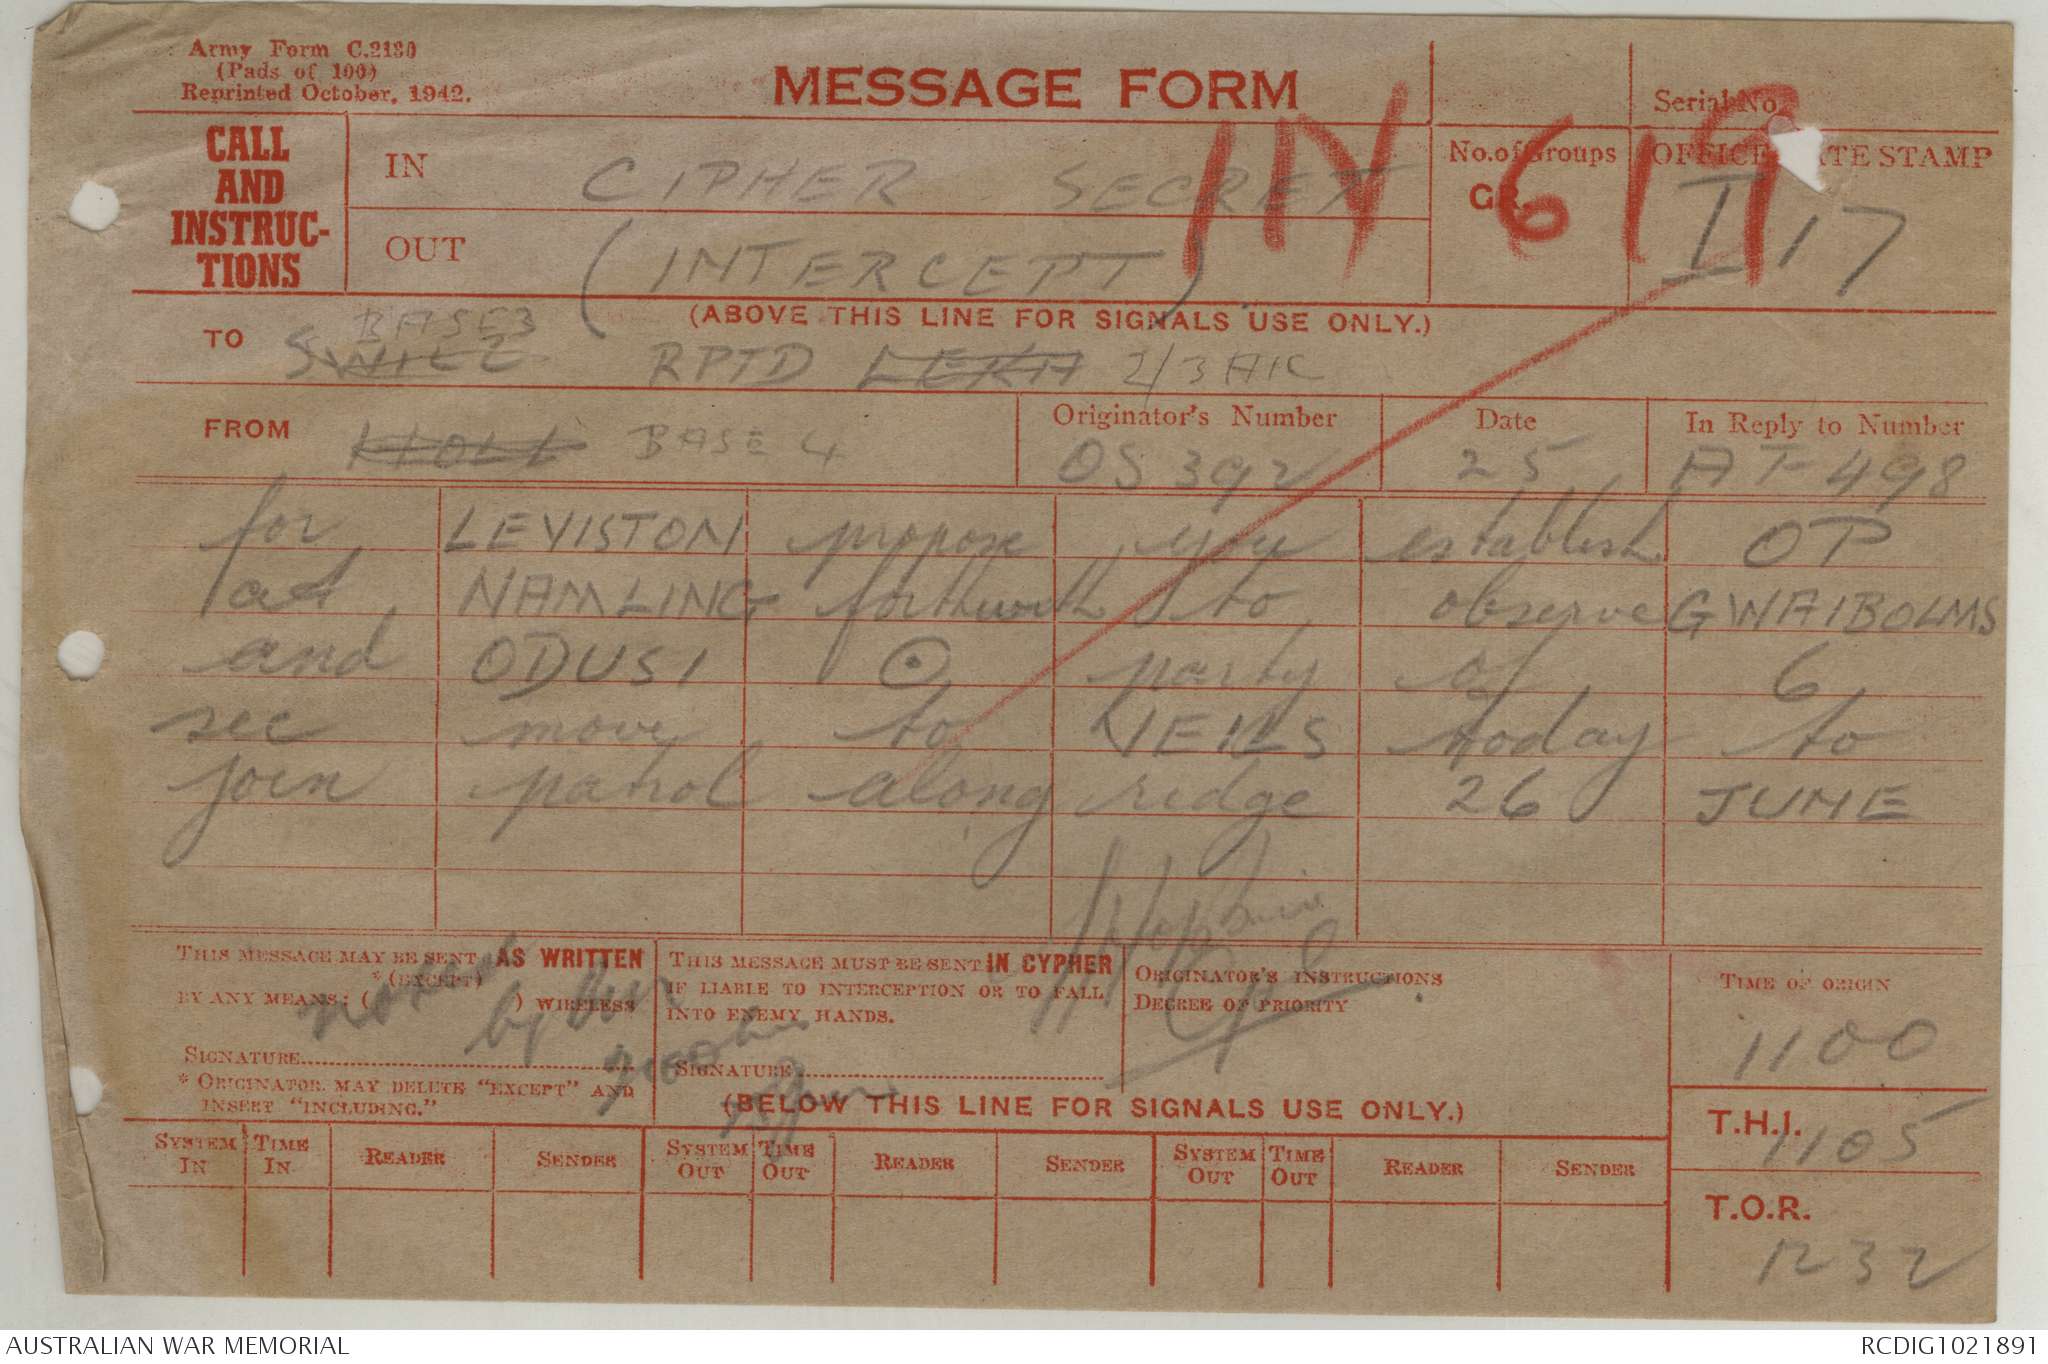 Army Form C.2130
(Pads of 100)
Reprinted October, 1942.
MESSAGE FORM
Serial No.
IN 619
CALL
AND
INSTRUC-
TIONS
IN CIPHER SECRET
OUT (INTERCEPT)
No. of Groups
GR.
OFFICE DATE STAMP
I 17
(ABOVE THIS LINE FOR SIGNALS USE ONLY.)
BASE 3
TO SWILL RPTD LEKA 2/3 AIC
FROM BASE 4
Originator's Number
OS 392
Date
25
In Reply to Number
AT 498
for LEVISTON propose you establish OP
at NAMLING forthwith to observe GWAIBOLMS
and ODUSI party of 6
sec move to VEILS today to
join patrol along ridge 26 JUNE
THIS MESSAGE MAY BE SENT AS WRITTEN
*(EXCEPT)
BY ANY MEANS: ( ) WIRELESS
by
SIGNATURE
* ORIGINATOR MAY DELETE "EXCEPT" AND
INSERT "INCLUDING."
THIS MESSAGE MUST BE SENT IN CYPHER
IF LIABLE TO INTERCEPTION OR TO FALL
INTO ENEMY HANDS.
SIGNATURE
ORIGINATOR'S INSTRUCTIONS
DEGREE OF PRIORITY
TIME OF ORIGIN
1100
(BELOW THIS LINE FOR SIGNALS USE ONLY.)
T.H.I.
1105
SYSTEM IN TIME IN READER SENDER SYSTEM OUT TIME OUT READER SENDER SYSTEM OUT TIME OUT READER SENDER
T.O.R.
1232
AUSTRALIAN WAR MEMORIAL
RCDIG1021891